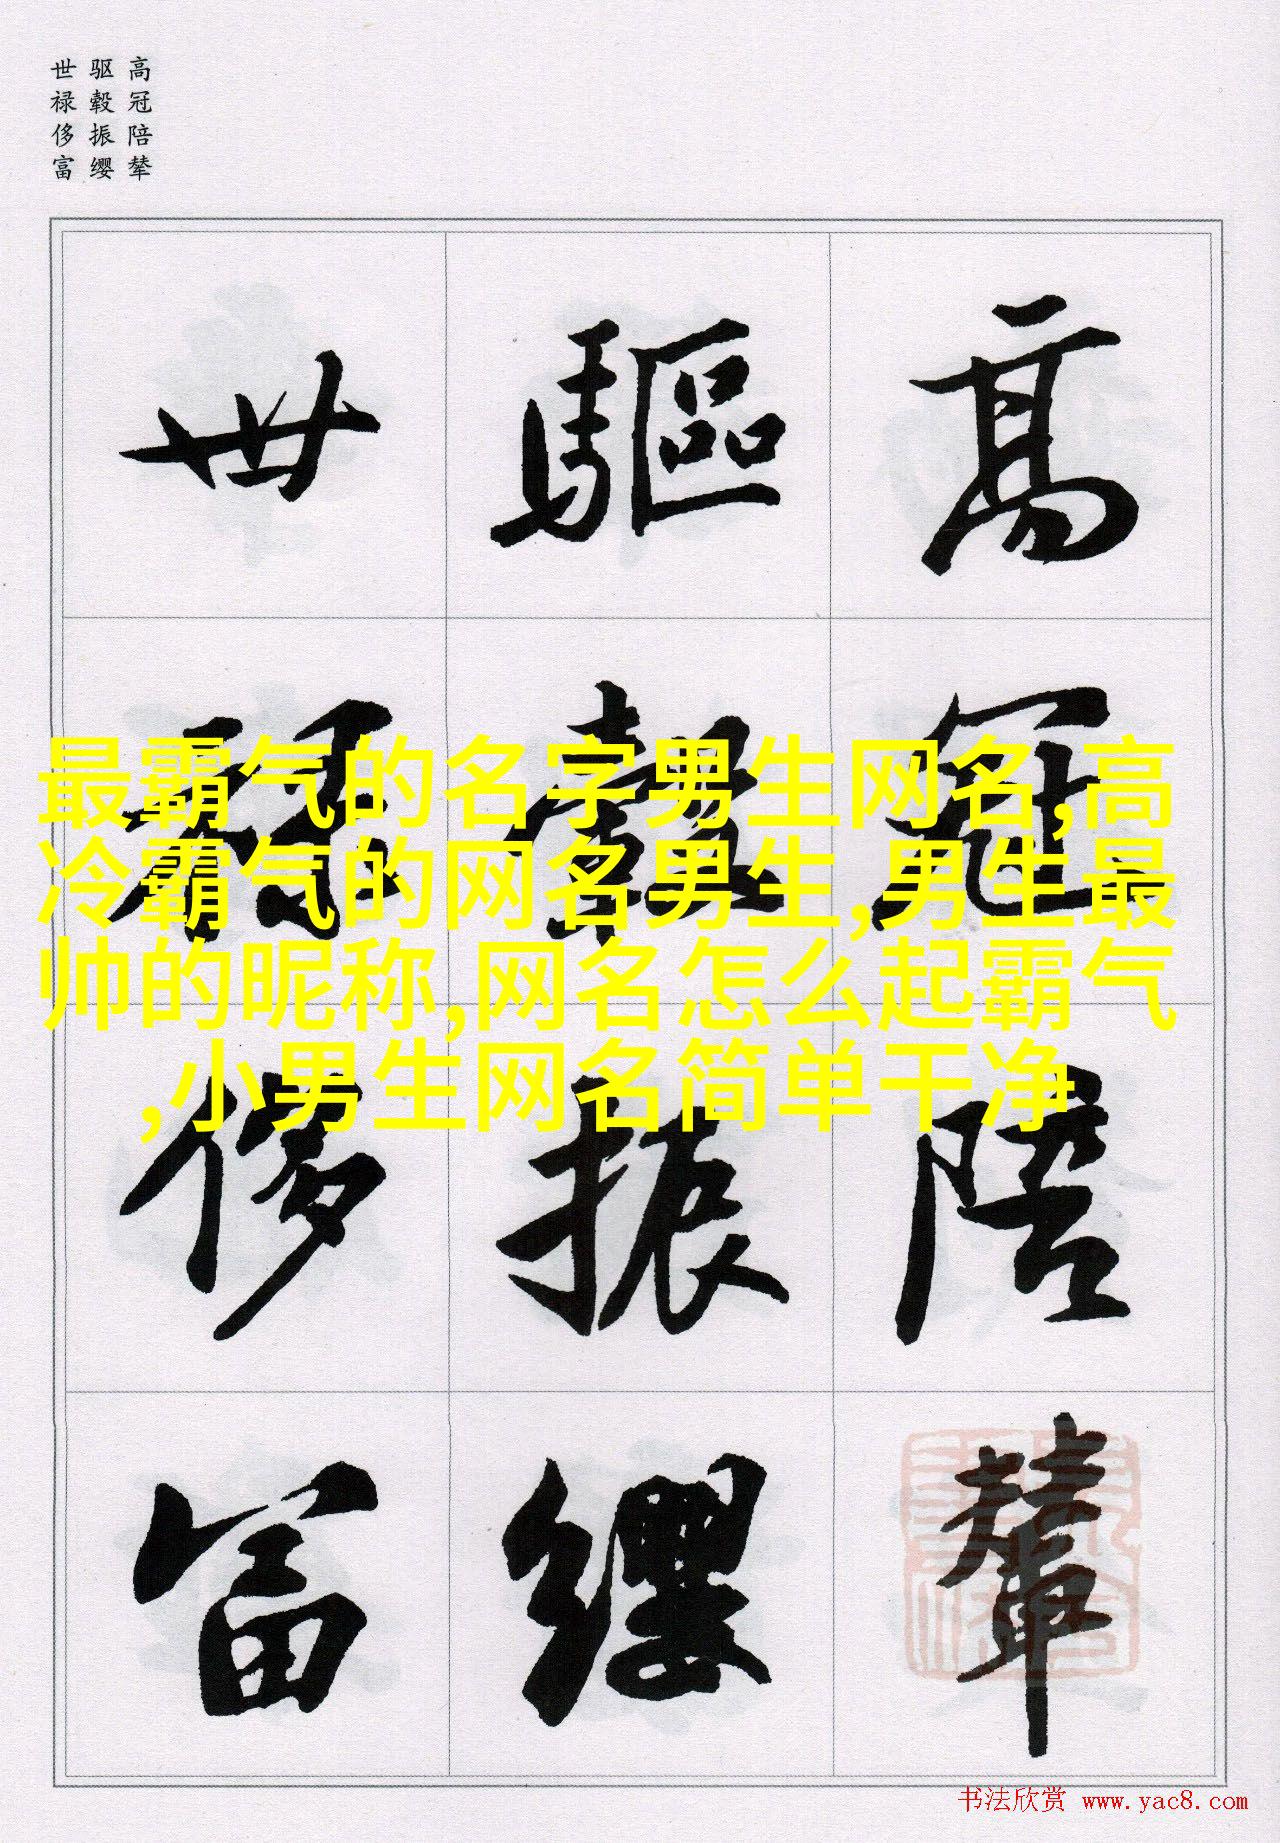 高冠陪辇
驱毂振缨
世禄侈富
高冠陪輦
驅轂振纓
世禄侈富
最霸气的名字男生网名,高
冷霸气的网名男生,男生最
帅的昵称,网名怎么起霸气
,小男生网名简单干净
书法欣赏 www.yac8.com